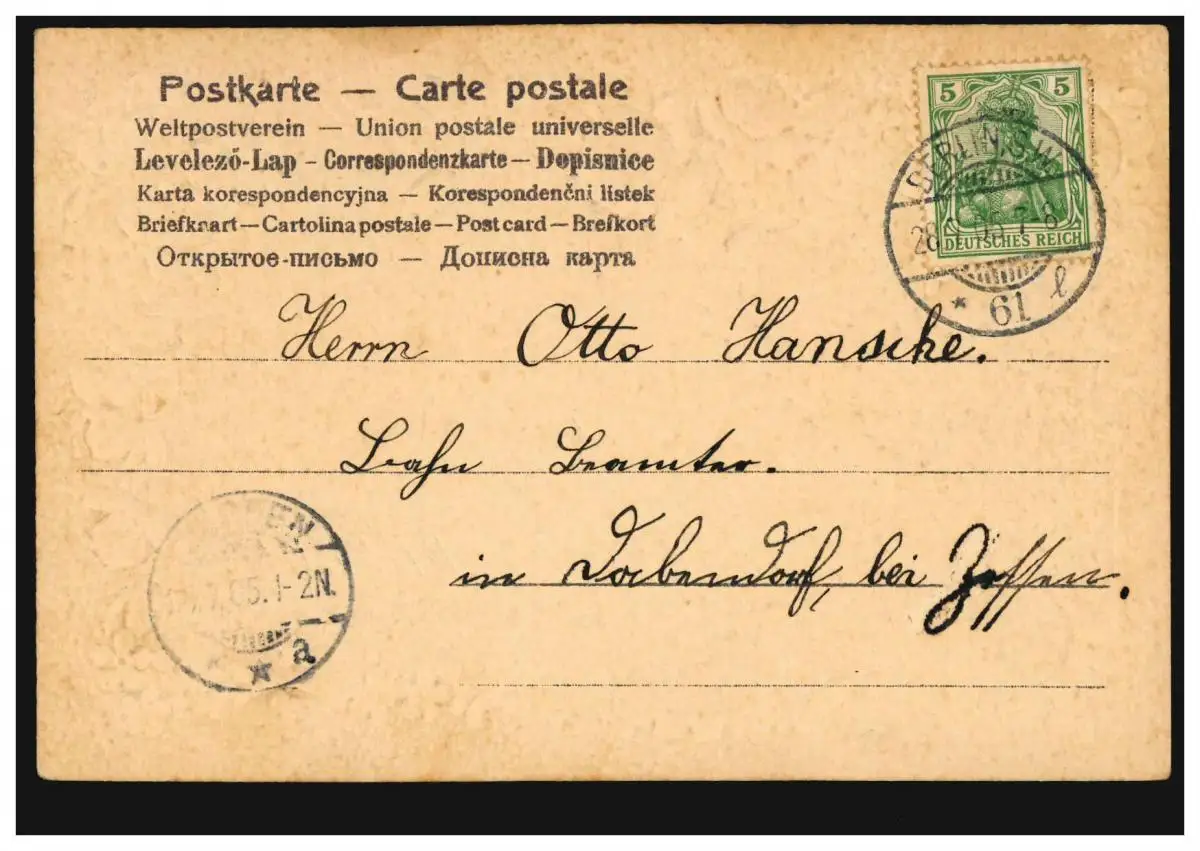 Postkarte — Carte postale
Weltpostverein — Union postale universelle
Levelező-Lap – Correspondenzkarte – Dopisnice
Karta korespondencyjna — Korespondenčni listek
Briefkaart — Cartolina postale — Post card — Brefkort
Открытое-письмо — Дописна карта
5 5
DEUTSCHES REICH
BERLIN S.W.
7-8
* 61 l
Herrn Otto Hanscke.
Bahn Beamter.
in Dabendorf, bei Zossen.
05. 1-2N.
* a